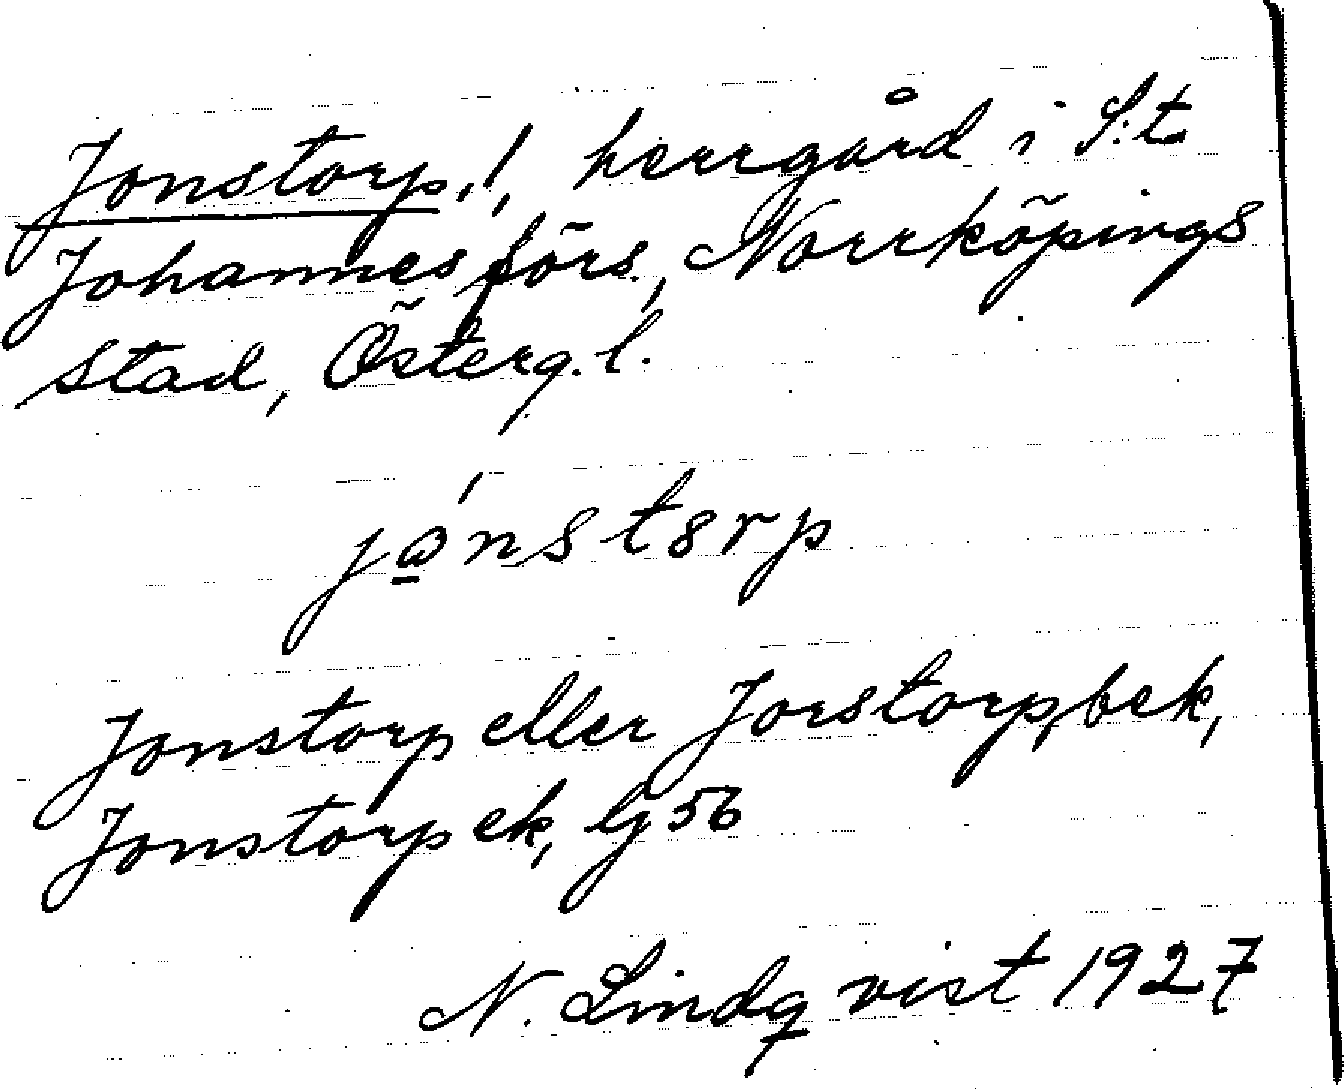 Jonstorp,!, herrgård i S:t
Johannes förs, Norrköpings
stad, Österg. l.
jó̲nstɜrp
Jonstorp eller Jorstorp, bek,
Jonstorp ek, lj 56
N. Lindqvist 1927